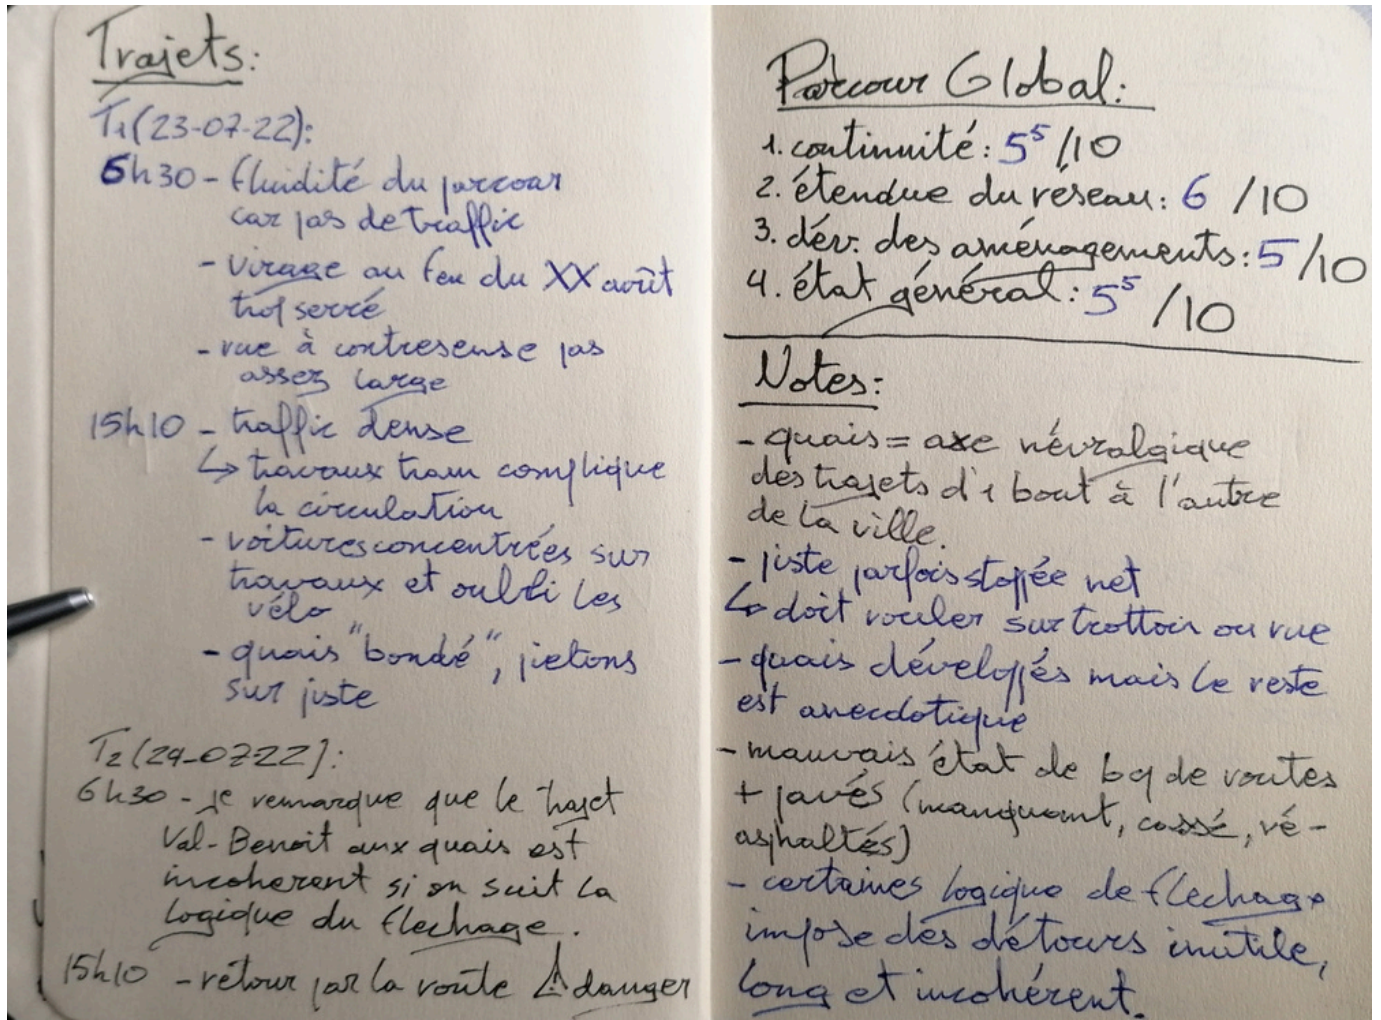 Trajets:
T1(23-07-22):
6h30 - fluidité du parcour
car pas de traffic
- virage au feu du XX août
trop serré
- rue à contresense pas
assez large
15h10 - traffic dense
↳ travaux tram complique
la circulation
- voitures concentrées sur
travaux et oubli les
vélo
- quais "bondé", pietons
sur piste
T2(24-07-22):
6h30 - je remarque que le trajet
Val-Benoit aux quais est
incoherent si on suit la
logique du flechage.
15h10 - retour par la route ⚠ danger
Parcour Global:
1. continuité: 5⁵/10
2. étendue du réseau: 6 /10
3. dév. des aménagements: 5/10
4. état général: 5⁵ /10
Notes:
- quais = axe névralgique
des trajets d'1 bout à l'autre
de la ville.
- piste parfois stoppée net
↳ doit rouler sur trottoir ou rue
- quais développés mais le reste
est anecdotique
- mauvais état de bq de routes
+ pavés (manquant, cassé, ré-
asphaltés)
- certaines logique de flechage
impose des détours inutile,
long et incohérent.